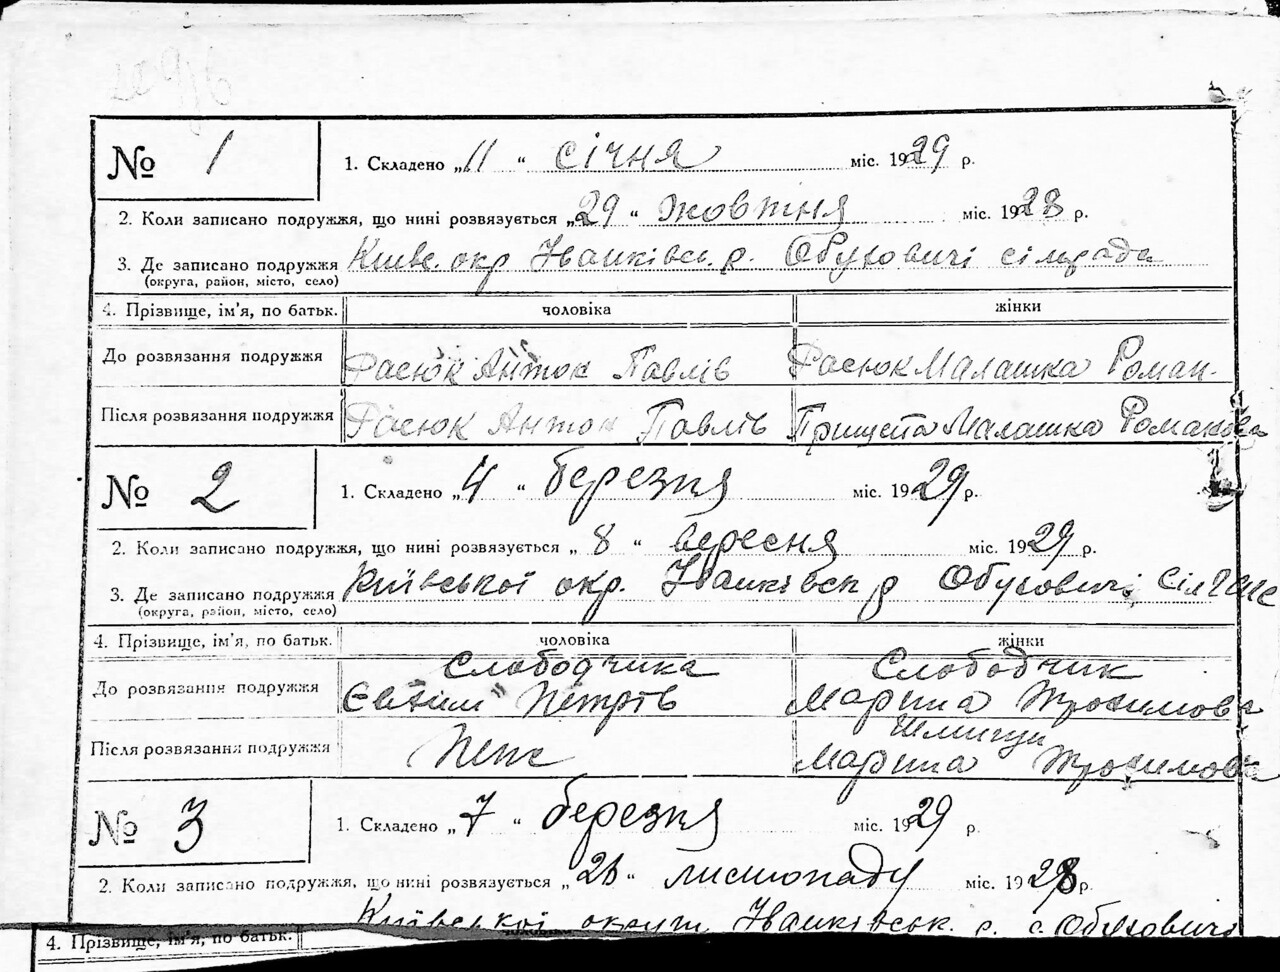 № 1
1. Складено „11“ січня міс. 1929 р.
2. Коли записано подружжя, що нині розвязується „29“ жовтня міс. 1928 р.
3. Де записано подружжя Київс. окр Іванківсь. р. Обуховичі сільрада
(округа, район, місто, село)
4. Прізвище, ім'я, по батьк. чоловіка жінки
До розвязання подружжя Фасюк Антон Павлів Фасюк Малашка Роман.
Після розвязання подружжя Фасюк Антон Павлів Прищепа Малашка Романова
№ 2
1. Складено „4“ березня міс. 1929 р.
2. Коли записано подружжя, що нині розвязується „8“ вересня міс. 1929 р.
3. Де записано подружжя Київської окр. Іванківськ р Обуховичі
(округа, район, місто, село)
4. Прізвище, ім'я, по батьк. чоловіка жінки
Слободчика Слободчик
До розвязання подружжя Євхим Петрів Марина Трохимова
Після розвязання подружжя Марина Трохимова
№ 3
1. Складено „7“ березня міс. 1929 р.
2. Коли записано подружжя, що нині розвязується „26“ листопаду міс. 1928 р.
Київської округи Іванківськ. р. с. Обуховичі
4. Прізвище, ім'я, по батьк.